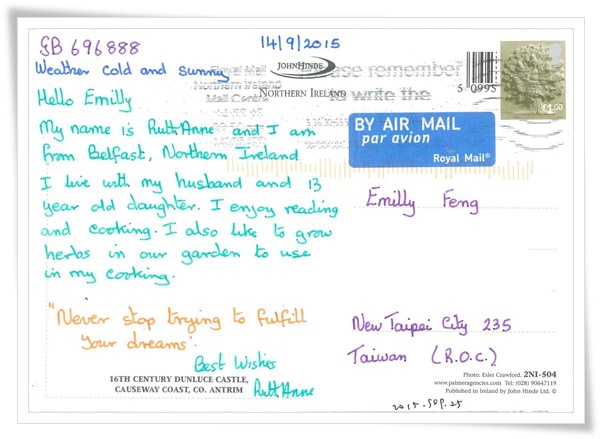 GB 696888
14/9/2015
Weather cold and sunny
JOHN HINDE
NORTHERN IRELAND
Royal Mail
Northern Ireland
Mail Centre
remember
to write the
5 0995
£1.00
BY AIR MAIL
par avion
Royal Mail®
Hello Emilly
My name is RuthAnne and I am
from Belfast, Northern Ireland
I live with my husband and 13
year old daughter. I enjoy reading
and cooking. I also like to grow
herbs in our garden to use
in my cooking.
"Never stop trying to fulfill
your dreams"
Best Wishes
RuthAnne
Emilly Feng
New Taipei City 235
Taiwan (R.O.C.)
16TH CENTURY DUNLUCE CASTLE,
CAUSEWAY COAST, CO. ANTRIM
Photo: Esler Crawford. 2NI-504
www.palmeragencies.com Tel: (028) 90647119
Published in Ireland by John Hinde Ltd. ©
2015.sep.25